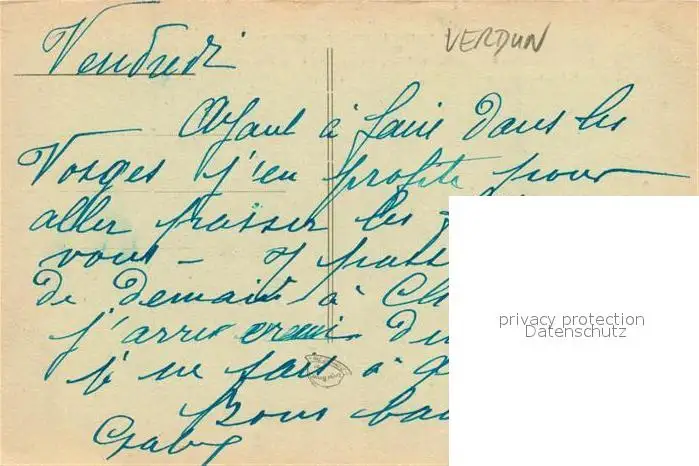 Vendredi
VERDUN
Ayant à faire dans les
Vosges j'en profite pour
aller passer les
vous - J
de demain à
j'arriverai
à
Bons
Gaby
privacy protection
Datenschutz